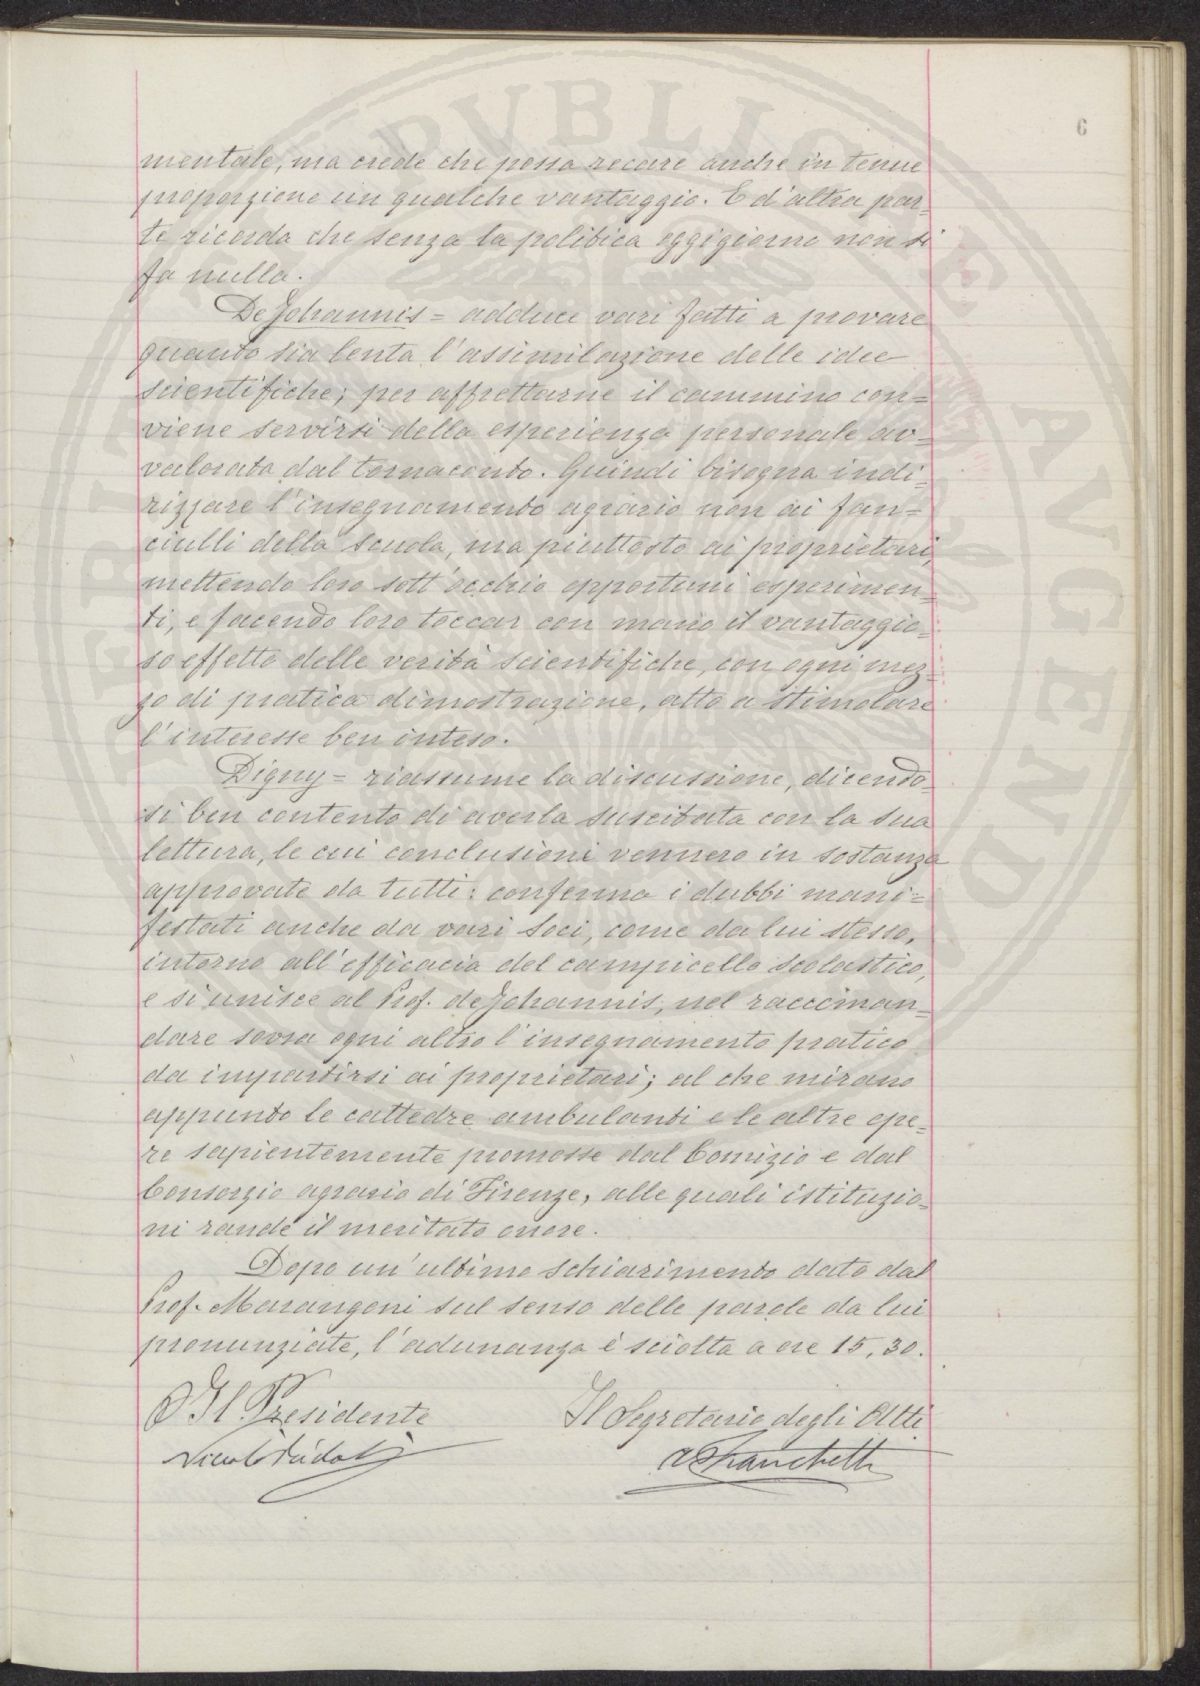 6
mentale, ma crede che possa recare anche in tenue
proporzione un qualche vantaggio. E d'altra par=
te ricorda che senza la politica oggigiorno non si
fa nulla.
De Johannis = adduce vari fatti a provare
quanto sia lenta l'assimilazione delle idee
scientifiche; per affrettarne il cammino con=
viene servirsi della esperienza personale av=
valorata dal tornaconto. Quindi bisogna indi=
rizzare l'insegnamento agrario non ai fan=
ciulli della scuola, ma piuttosto ai proprietari,
mettendo loro sott'occhio opportuni esperimen=
ti, e facendo loro toccar con mano il vantaggio=
so effetto delle verità scientifiche, con ogni mez=
zo di pratica dimostrazione, atto a stimolare
l'interesse ben inteso.
Digny = riassume la discussione, dicendo=
si ben contento di averla suscitata con la sua
lettura, le cui conclusioni vennero in sostanza
approvate da tutti: conferma i dubbi mani=
festati anche da vari Soci, come da lui stesso,
intorno all'efficacia del campicello scolastico,
e si unisce al Prof. de Johannis, nel raccoman=
dare sovra ogni altro l'insegnamento pratico
da impartirsi ai proprietari; al che mirano
appunto le cattedre ambulanti e le altre ope=
re sapientemente promosse dal Comizio e dal
Consorzio agrario di Firenze, alle quali istituzio=
ni rende il meritato onore.
Dopo un'ultimo schiarimento dato dal
Prof. Marangoni sul senso delle parole da lui
pronunziate, l'adunanza è sciolta a ore 15,30.
Il Presidente
Il Segretario degli Atti
Franchetti
PVBLICAE
AVGENDAE